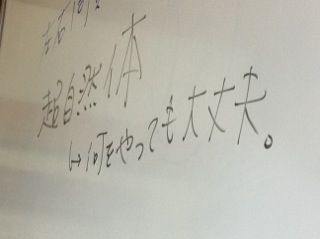 超自然体
↳何をやっても大丈夫。